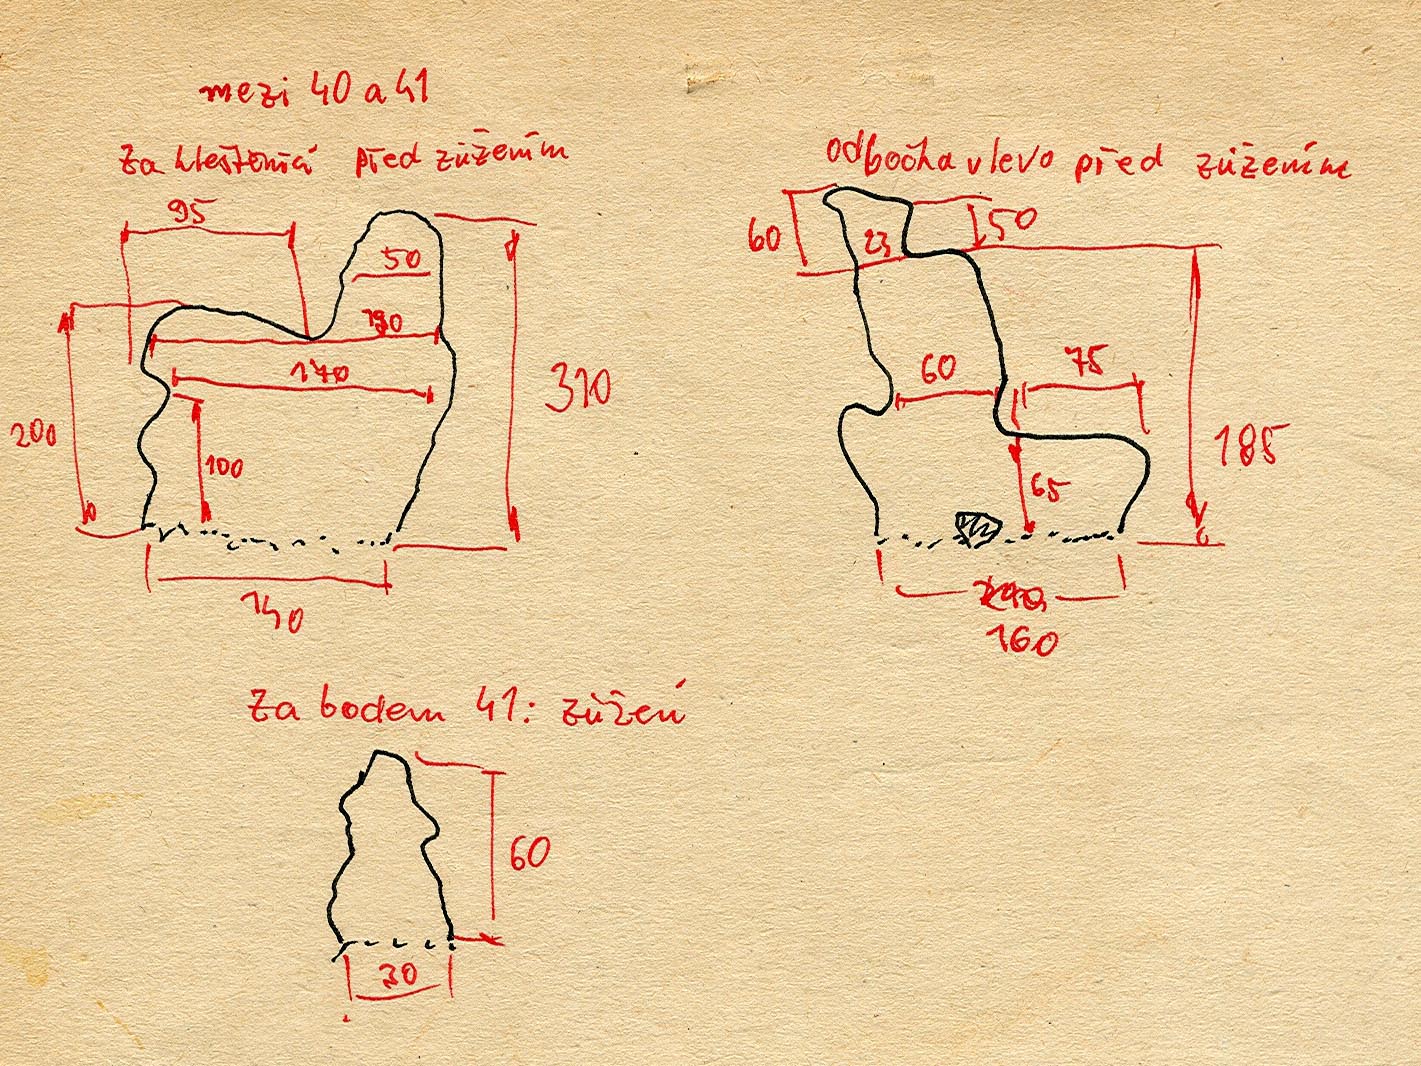 mezi 40 a 41
Za před zúžením
95
50
170
200
100
310
140
odbočka vlevo před zúžením
60
23
50
60
75
185
65
160
Za bodem 41: zúžení
60
30